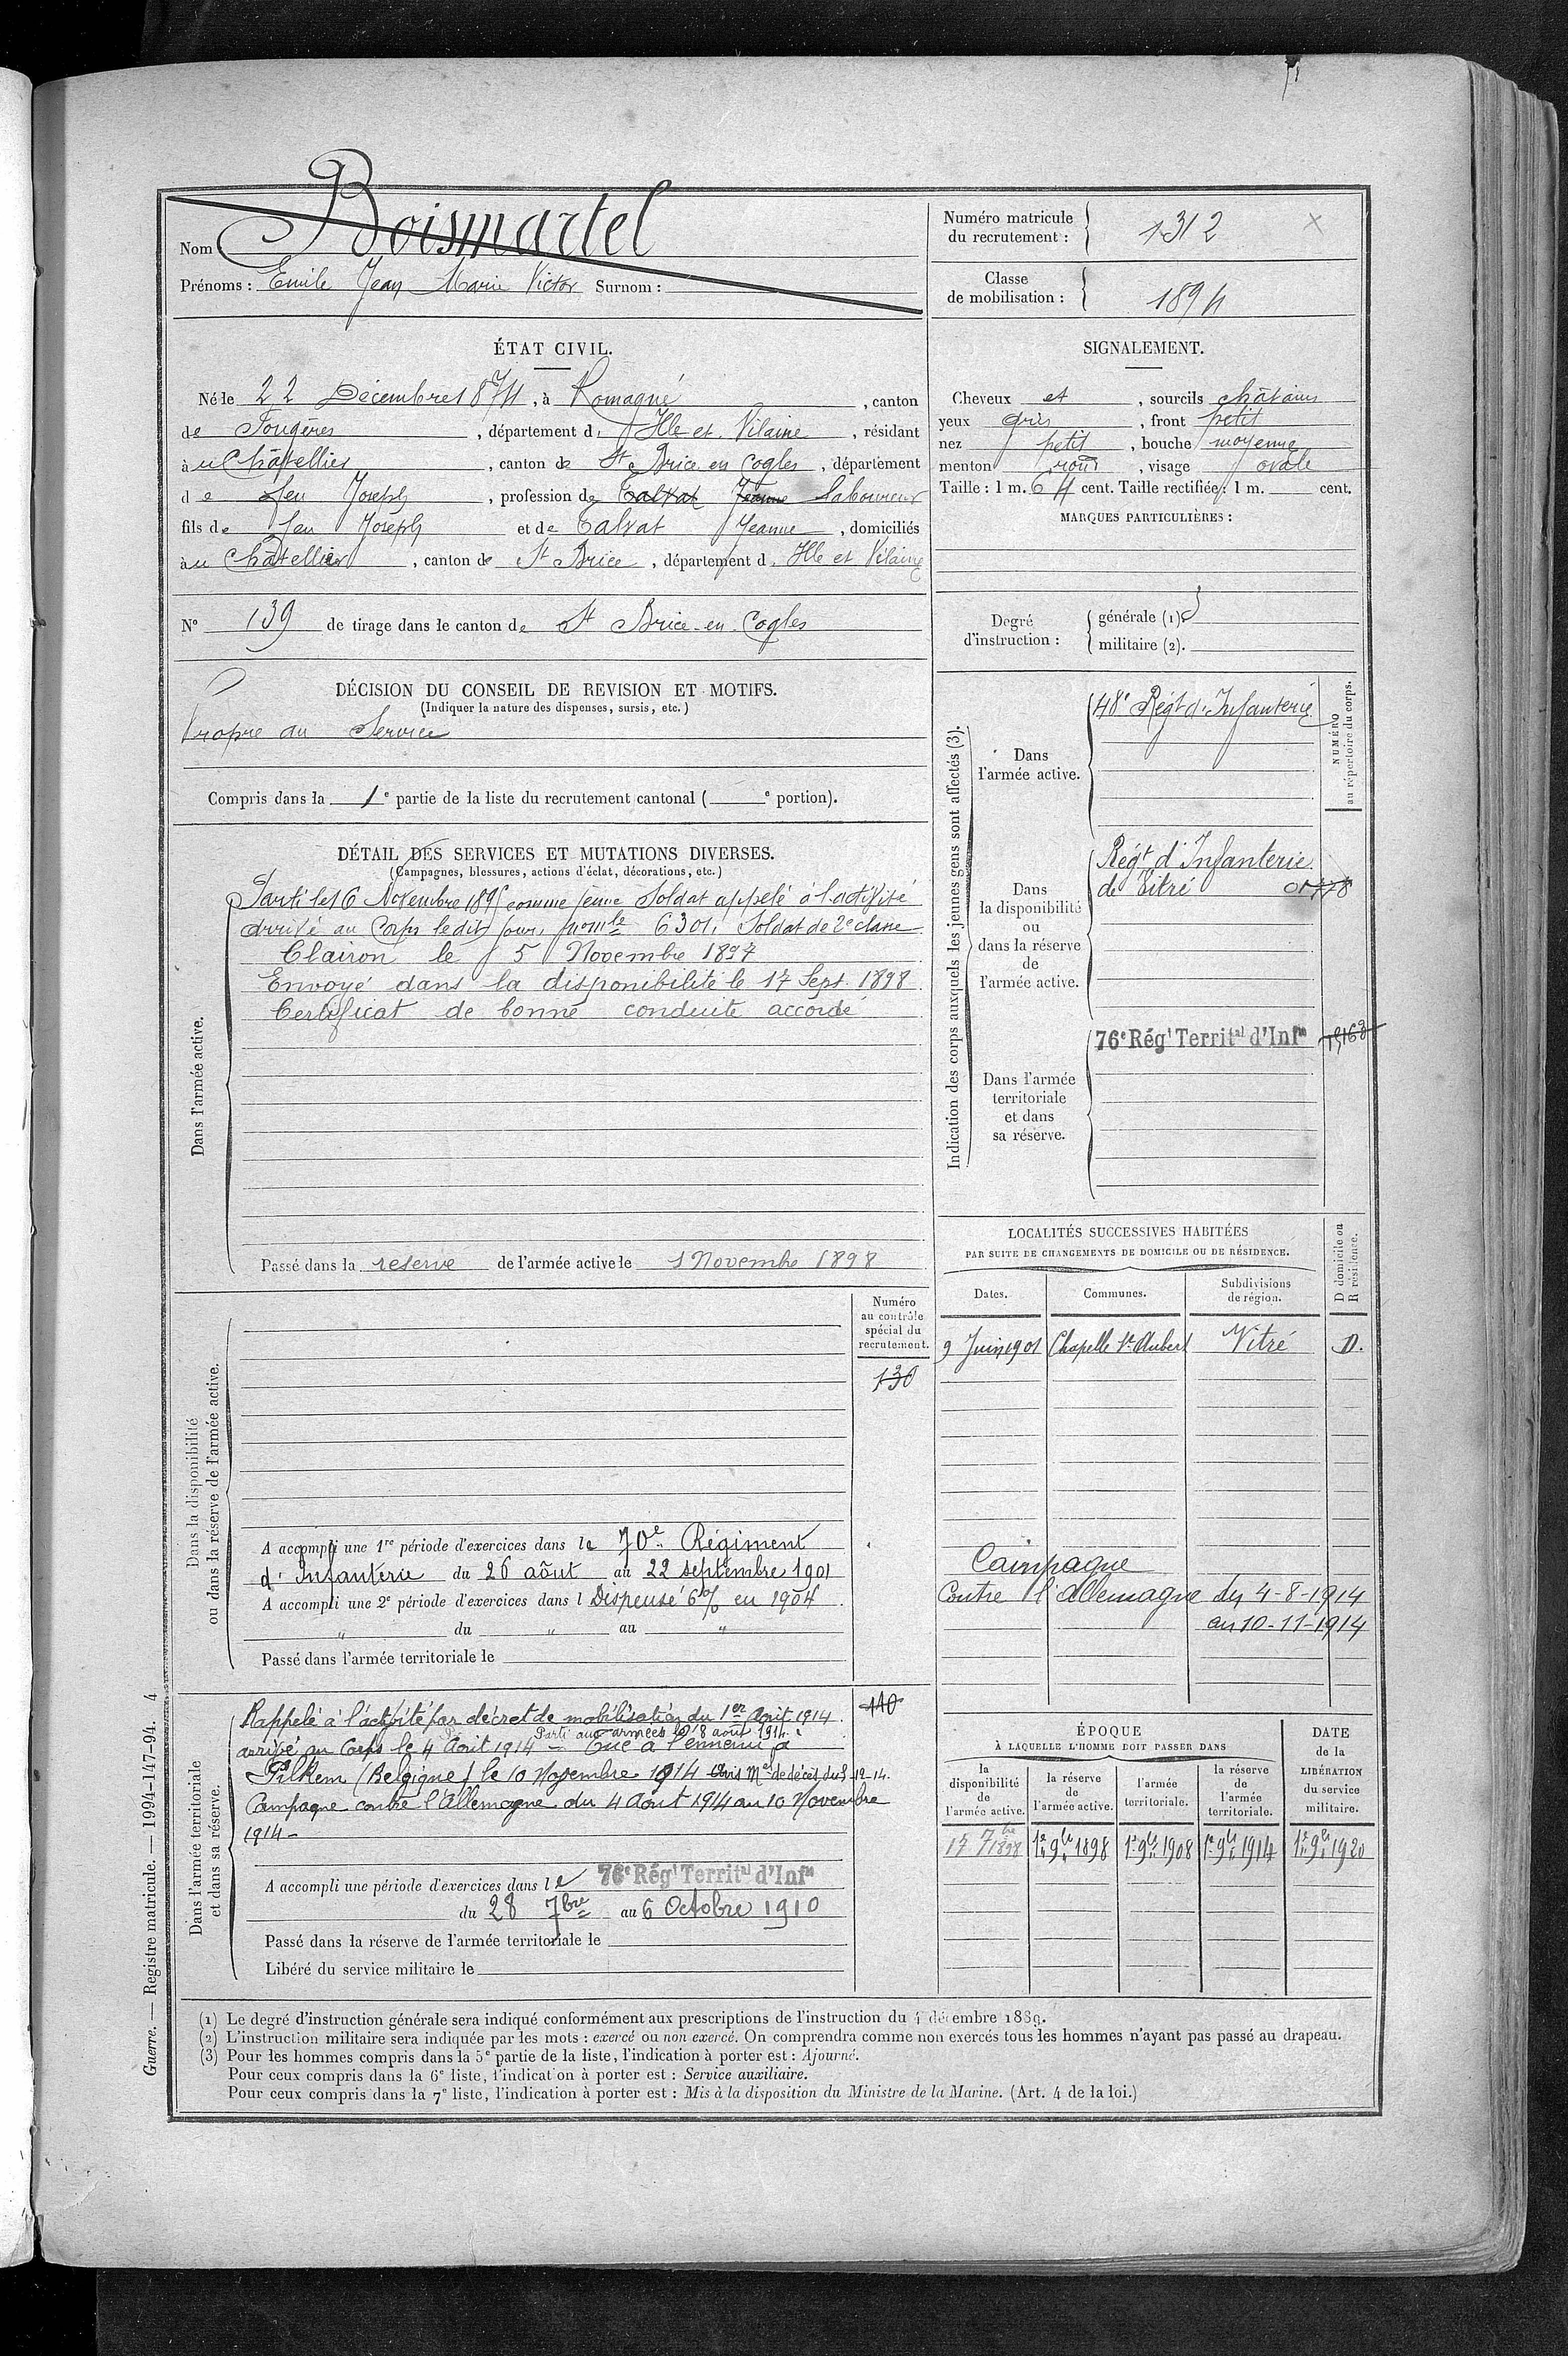 Nom Boismartel
Prénoms : Emile Jean Marie Victor Surnom :
Numéro matricule du recrutement : 1312
Classe de mobilisation : 1894
ÉTAT CIVIL.
Né le 22 Décembre 1874, à Romagné, canton
de Fougères, département d. Ille et Vilaine, résidant
à u Châtellier, canton de St Brice en Cogles, département
d e feu Joseph, profession de Talvat Jeanne laboureur
fils de feu Joseph et de Talvat Jeanne, domiciliés
à u Châtellier, canton de St Brice, département d. Ille et Vilaine
N° 139 de tirage dans le canton de St Brice-en-Cogles
SIGNALEMENT.
Cheveux et, sourcils châtains
yeux gris, front petit
nez petit, bouche moyenne
menton rond, visage ovale
Taille : 1 m. 64 cent. Taille rectifiée : 1 m. cent.
MARQUES PARTICULIÈRES :
Degré d'instruction : générale (1). 3
militaire (2).
DÉCISION DU CONSEIL DE REVISION ET MOTIFS.
(Indiquer la nature des dispenses, sursis, etc.)
Propre au Service
Compris dans la 1e partie de la liste du recrutement cantonal ( e portion).
DÉTAIL DES SERVICES ET MUTATIONS DIVERSES.
(Campagnes, blessures, actions d'éclat, décorations, etc.)
Dans l'armée active.
Parti le 16 Novembre 1895 comme jeune Soldat appelé à l'activité
arrivé au Corps le dit jour, no mle 6301, Soldat de 2e classe
Clairon le 5 Novembre 1897
Envoyé dans la disponibilité le 17 Sept. 1898
Certificat de bonne conduite accordé
Passé dans la reserve de l'armée active le 1 Novembre 1898
Indication des corps auxquels les jeunes gens sont affectés (3).
NUMÉRO au répertoire du corps.
Dans l'armée active.
48e Régt d'Infanterie
Dans la disponibilité ou dans la réserve de l'armée active.
Régt d'Infanterie
de Vitré
Dans l'armée territoriale et dans sa réserve.
76e Régt Territal d'Infie
LOCALITÉS SUCCESSIVES HABITÉES
PAR SUITE DE CHANGEMENTS DE DOMICILE OU DE RÉSIDENCE.
Dates. Communes. Subdivisions de région. D domicile ou R résidence.
9 Juin 1901 Chapelle St Aubert Vitré D.
Campagne
Contre l'Allemagne du 4-8-1914
au 10-11-1914
Dans la disponibilité ou dans la réserve de l'armée active.
Numéro au contrôle spécial du recrutement.
130
A accompli une 1re période d'exercices dans le 70e Régiment
d'Infanterie du 26 août au 22 septembre 1901
A accompli une 2e période d'exercices dans l Dispensé 6% en 1904
" du " au "
Passé dans l'armée territoriale le
Dans l'armée territoriale et dans sa réserve.
110
Rappelé à l'activité par décret de mobilisation du 1er Août 1914.
arrivé au Corps le 4 Août 1914 Parti aux armées le 8 août 1914. Tué à l'ennemi à
Pilkem (Belgique) le 10 Novembre 1914 Avis Mel de décès du 8-12-14.
Campagne contre l'Allemagne du 4 Août 1914 au 10 Novembre
1914 -
A accompli une période d'exercices dans le 76e Régt Territal d'Infie
du 28 7bre au 6 Octobre 1910
Passé dans la réserve de l'armée territoriale le
Libéré du service militaire le
ÉPOQUE
À LAQUELLE L'HOMME DOIT PASSER DANS
la disponibilité de l'armée active. la réserve de l'armée active. l'armée territoriale. la réserve de l'armée territoriale.
DATE de la LIBÉRATION du service militaire.
17 7bre 1898 1er 9bre 1898 1er 9bre 1908 1er 9bre 1914 1er 9bre 1920
(1) Le degré d'instruction générale sera indiqué conformément aux prescriptions de l'instruction du 4 décembre 1889.
(2) L'instruction militaire sera indiquée par les mots : exercé ou non exercé. On comprendra comme non exercés tous les hommes n'ayant pas passé au drapeau.
(3) Pour les hommes compris dans la 5e partie de la liste, l'indication à porter est : Ajourné.
Pour ceux compris dans la 6e liste, l'indication à porter est : Service auxiliaire.
Pour ceux compris dans la 7e liste, l'indication à porter est : Mis à la disposition du Ministre de la Marine. (Art. 4 de la loi.)
Guerre. — Registre matricule. — 1994-147-94. 4